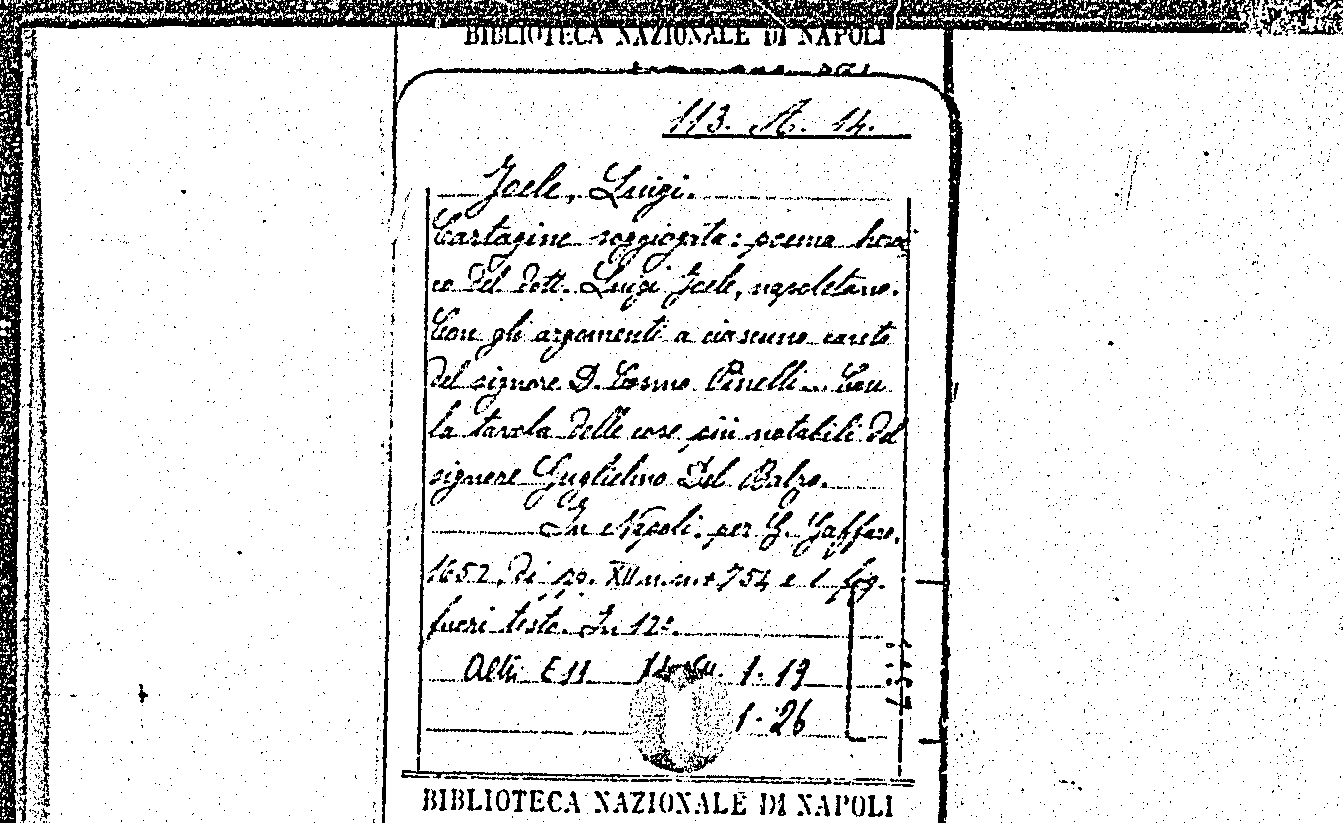 BIBLIOTECA NAZIONALE DI NAPOLI
113. A. 14.
Joele, Luigi.
Cartagine soggiogata: poema heroi
co del dott. Luigi Joele, napoletano.
Con gli argomenti a ciascuno canto
del signore D. Cosmo Pinelli... Con
la tavola delle cose più notabili del
signore Guglielmo Del Balzo.
In Napoli. per G. Gaffaro,
1652, di pp. XII n.n. + 754 e 1 fig.
fuori testo. In 12°.
Altri Es. 1. 19
1. 26
BIBLIOTECA NAZIONALE DI NAPOLI